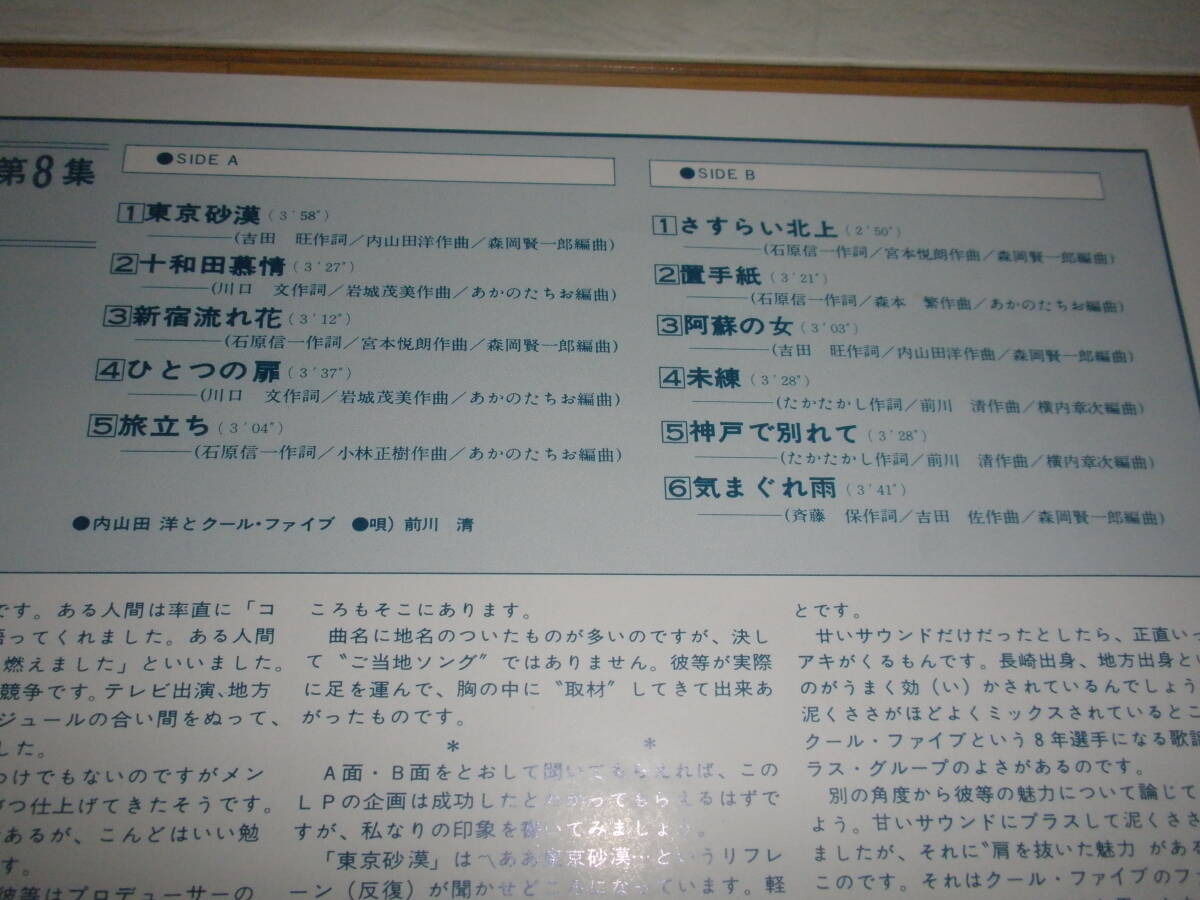 第8集
●SIDE A
1 東京砂漠(3'58")
(吉田 旺作詞/内山田洋作曲/森岡賢一郎編曲)
2 十和田慕情(3'27")
(川口 文作詞/岩城茂美作曲/あかのたちお編曲)
3 新宿流れ花(3'12")
(石原信一作詞/宮本悦朗作曲/森岡賢一郎編曲)
4 ひとつの扉(3'37")
(川口 文作詞/岩城茂美作曲/あかのたちお編曲)
5 旅立ち(3'04")
(石原信一作詞/小林正樹作曲/あかのたちお編曲)
●SIDE B
1 さすらい北上(2'50")
(石原信一作詞/宮本悦朗作曲/森岡賢一郎編曲)
2 置手紙(3'21")
(石原信一作詞/森本 繁作曲/あかのたちお編曲)
3 阿蘇の女(3'03")
(吉田 旺作詞/内山田洋作曲/森岡賢一郎編曲)
4 未練(3'28")
(たかたかし作詞/前川 清作曲/横内章次編曲)
5 神戸で別れて(3'28")
(たかたかし作詞/前川 清作曲/横内章次編曲)
6 気まぐれ雨(3'41")
(斉藤 保作詞/吉田 佐作曲/森岡賢一郎編曲)
●内山田 洋とクール・ファイブ ●唄)前川 清
です。ある人間は率直に「コ
語ってくれました。ある人間
燃えました」といいました。
競争です。テレビ出演、地方
ジュールの合い間をぬって、
した。
つけでもないのですがメン
づつ仕上げてきたそうです。
あるが、こんどはいい勉
す。
彼等はプロデューサーの
ころもそこにあります。
曲名に地名のついたものが多いのですが、決し
て〝ご当地ソング〞ではありません。彼等が実際
に足を運んで、胸の中に〝取材〞してきて出来あ
がったものです。
* *
A面・B面をとおして聞いてもらえれば、この
LPの企画は成功したとわかってもらえるはずで
すが、私なりの印象を書いてみましょう。
「東京砂漠」は〽ああ東京砂漠…というリフレ
ーン(反復)が聞かせどころになっています。軽
とです。
甘いサウンドだけだったとしたら、正直いっ
アキがくるもんです。長崎出身、地方出身とい
のがうまく効(い)かされているんでしょう
泥くささがほどよくミックスされているとこ
クール・ファイブという8年選手になる歌謡
ラス・グループのよさがあるのです。
別の角度から彼等の魅力について論じて
よう。甘いサウンドにプラスして泥くささ
ましたが、それに〝肩を抜いた魅力 がある
このです。それはクール・ファイブのファ